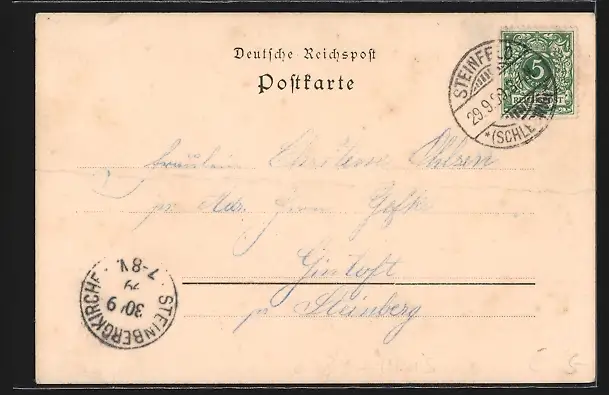 Deutsche Reichspost
Postkarte
5
REICHSPOST
STEINFELD
29.9.99
*(SCHLESWIG)
Fräulein Christine Ohlsen
pr Adr. Herrn
Gintoft
pr Steinberg
STEINBERGKIRCHE
30/9
99
7-8V.